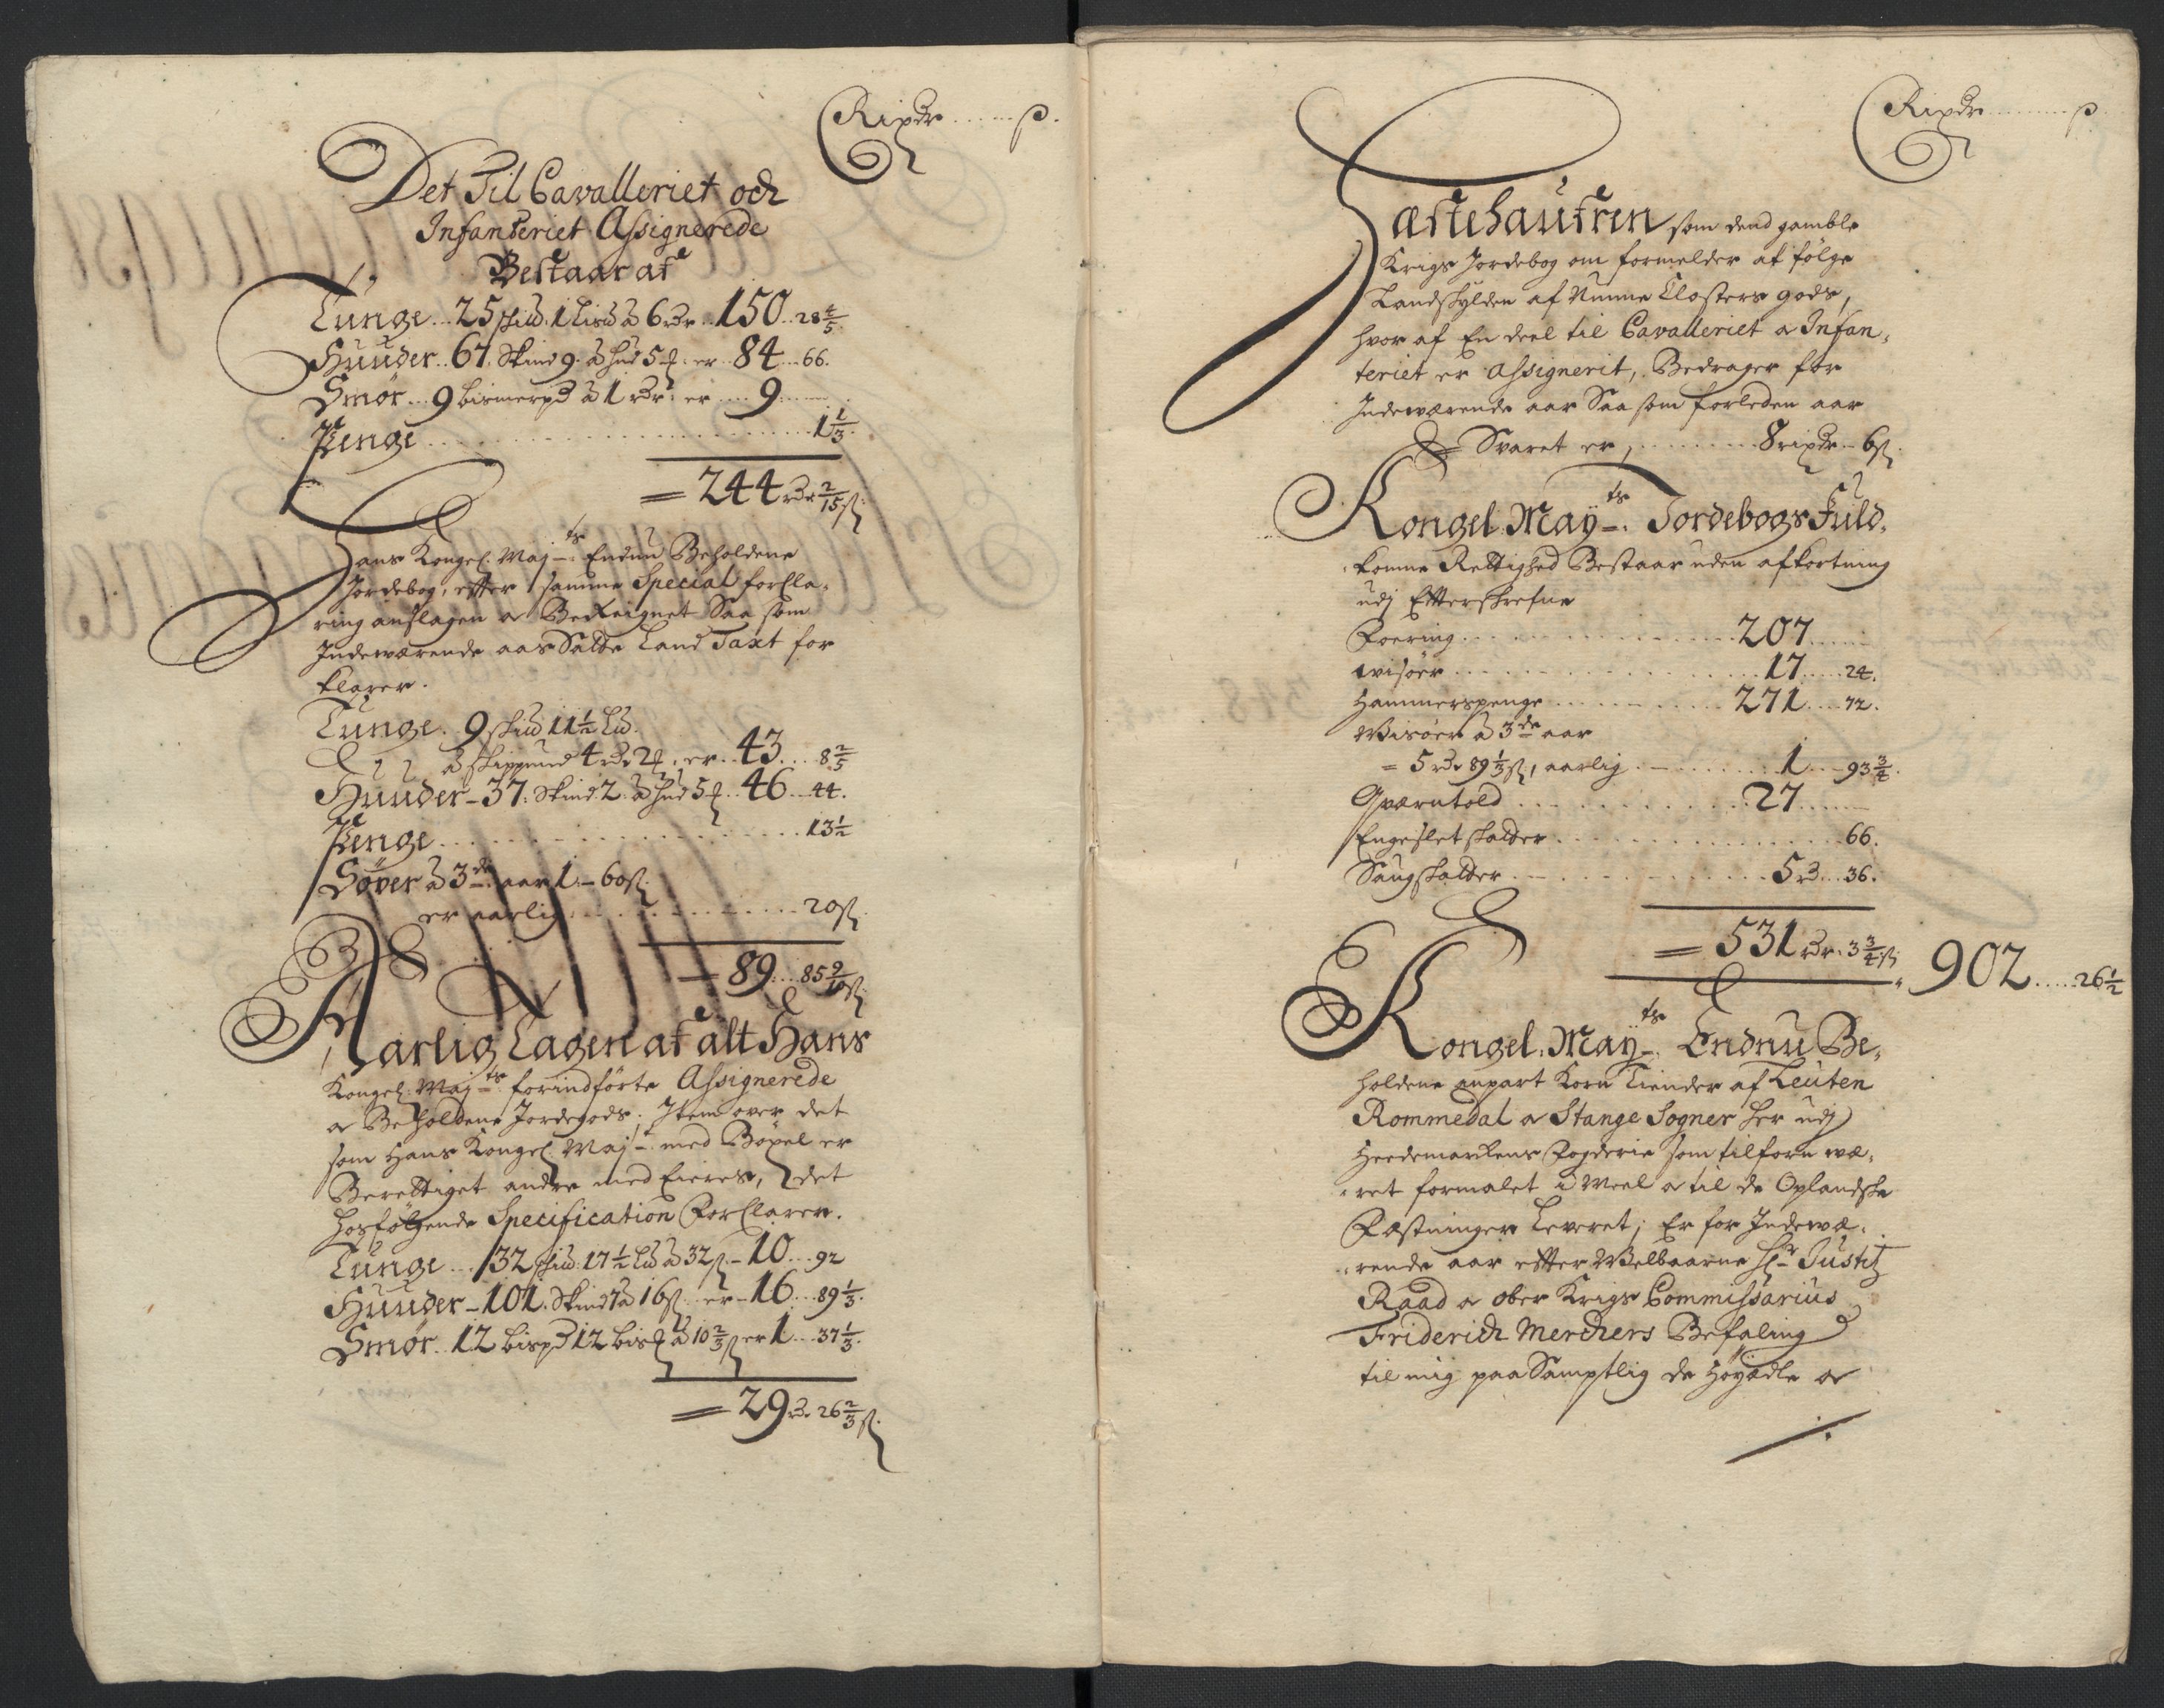 Rixdr ...... ß.
Det Til Cavalleriet och
Infanteriet Assignerede
Bestaar af
Tunge .. 25 skiu. 1 Lisu à 6 rdr .. 150 .. 28 4/5.
Huuder .. 67. Skind 9. à hud 5 ort er .. 84 .. 66.
Smør ... 9 bismerpd à 1 rdr: er .... 9 ....
Penge ........ 1 1/3.
= 244 rdr 2/15 ß.
Hans Kongel: Maj ts. Endnu Beholdene
Jordebog, efter samme Special forcla-
ring anslagen og Bereignet Saa som
Indewærende aars Satte Land Taxt for
klarer.
Tunge. 9 skiu 11 1/2 Lu.
à skippund 4 rdr 2 ort, er .. 43 ... 8 2/5
Huuder - 37. Skind 2. à hud 5 ort .. 46 ... 44.
Penge ........ 13 1/2
Søver à 3 de aar 1 - 60 ß.
er aarlig ........ 20 ß.
= 89 ... 85 9/10 ß.
Aarlig Tagen af alt Hans
Kongel: Maj ts. forindførte Assignerede
og Beholdene Jordegods; Item over det
som Hans Kongel Maj t. med Bøxel er
Berettiget andre med Eieres, det
hosfølgende Specification Forclarer.
Tunge ... 132 skiu: 17 1/2 Lu à 32 ß - 10 ... 92
Huuder - 101. Skind 7 à 16 ß .. er - 16 ... 89 1/3.
Smør. 12 bispd 12 bis à 10 2/3 ß er 1 ... 37 1/3.
= 29 rdr 26 2/3 ß.
Rixdr ....... ß
Fæstehaufren som dend gamble
Krigs Jordebog om formelder af følge
Landskylden af Nunne Closters gods,
hvor af En deel til Cavalleriet og Infan-
teriet er Assignerit, Bedrager for
Indewærende aar Saa som forleden aar
Svaret er, ........ 8 rixdr - 6 ß.
Kongel: May ts. Jordebogs Fuld-
komne Rettighed Bestaar uden afkortning
udj Efterskrefne
Foering ........ 207 ....
Wisøer ........ 17 .... 24.
Hammerspenge ........ 271 ... 72.
Wisøer à 3 de aar
= 5 rdr 89 1/3 ß, aarlig ........ 1 ... 93 3/4.
Qværntold ........ 27 ....
Engeslet skatter ........ 66.
Saugskatter ........ 5 rd ... 36.
= 531 rdr. 3 3/4 ß.
902 ..... 26 1/2
Kongel: May ts. Endnu Be-
holdene anpart Korn Tiender af Leuten
Rommedal og Stange Sogner her udj
Heedemarkens Fogderie som tilforn wæ-
ret formalet i Meel og til de Oplandske
Fæstninger Leveret; Er for Indewæ-
rende aar efter Welbaarne Hr Justitz
Raad og ober Krigs Commissarius
Friderich Merchers Befaling
til mig paa Samptlig de Høyædle og